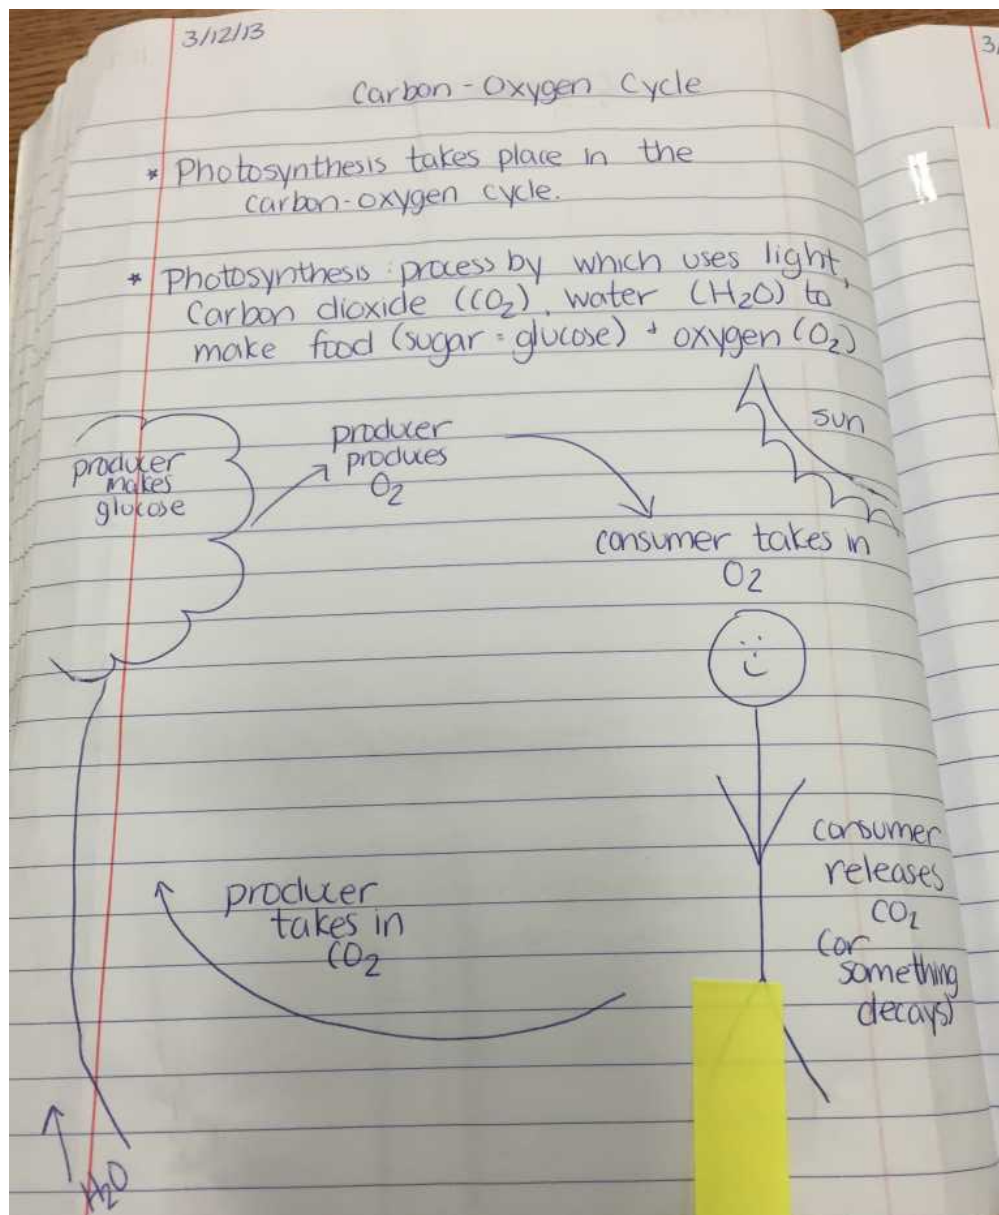 3/12/13
Carbon-Oxygen Cycle
* Photosynthesis takes place in the
carbon-oxygen cycle.
* Photosynthesis: process by which uses light,
Carbon dioxide (CO₂), water (H₂O) to
make food (sugar = glucose) + oxygen (O₂)
sun
producer
makes
glucose
producer
produces
O₂
consumer takes in
O₂
consumer
releases
CO₂
(or
something
decays)
producer
takes in
CO₂
H₂O